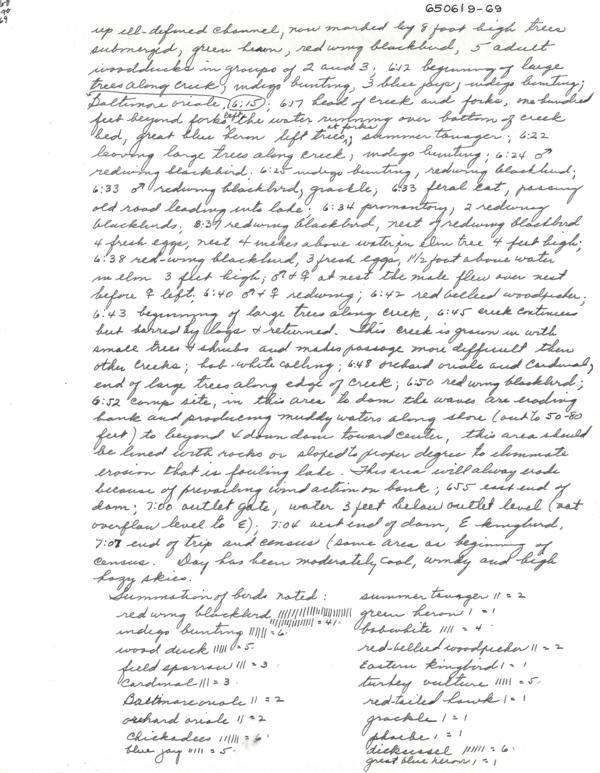 650619-69
up ill-defined channel, now marked by 8 foot high trees
submerged, green heron, redwing blackbird, 5 adult
woodducks in groups of 2 and 3; 6:12 beginning of large
trees along creek, indigo bunting, 3 blue jays, indigo bunting;
Baltimore oriole, (6:15); 6:17 head of creek and forks, one hundred
feet beyond forks left the water running over bottom of creek
bed, great blue heron left trees at forks, summer tanager; 6:22
leaving large trees along creek, indigo bunting; 6:24 ♂
redwing blackbird; 6:25 indigo bunting, redwing blackbird;
6:33 ♂ redwing blackbird, grackle; 6:33 feral cat, passing
old road leading into lake; 6:34 promontory, 2 redwing
blackbirds; 6:37 redwing blackbird, nest of redwing blackbird
4 fresh eggs, nest 4 inches above water, in elm tree 4 feet high;
6:38 red-wing blackbird, 3 fresh eggs, 1½ foot above water
in elm 3 feet high, ♂ + ♀ at nest the male flew over nest
before ♀ left; 6:40 ♂ + ♀ redwing; 6:42 red bellied woodpecker;
6:43 beginning of large trees along creek, 6:45 creek continues
but barred by logs & returned. This creek is grown in with
small trees & shrubs and makes passage more difficult than
other creeks; bob-white calling; 6:48 orchard oriole and Cardinal,
end of large trees along edge of creek; 6:50 redwing blackbird;
6:52 camp site, in this area to dam the waves are eroding
bank and producing muddy waters along shore (out to 50-80
feet) to beyond & down dam toward center, this area should
be lined with rocks or sloped to proper degree to eliminate
erosion that is fouling lake. This area will alway erode
because of prevailing wind action on bank; 6:55 east end of
dam; 7:00 outlet gate, water 3 feet below outlet level (not
overflow level to E); 7:04 west end of dam, E kingbird,
7:07 end of trip and census (same area as beginning of
census. Day has been moderately cool, windy and high
hazy skies.
Summation of birds noted:
redwing blackbird = 41.
indigo bunting = 6.
wood duck = 5.
field sparrow = 3.
Cardinal = 3.
Baltimore oriole = 2
orchard oriole = 2
Chickadees = 6.
blue jay = 5.
summer tanager = 2
green heron = 1
bobwhite = 4.
red-bellied woodpecker = 2
Eastern kingbird = 1
turkey vulture = 5.
red-tailed hawk = 1
grackle = 1
phoebe = 1
dickcissel = 6.
great blue heron = 1